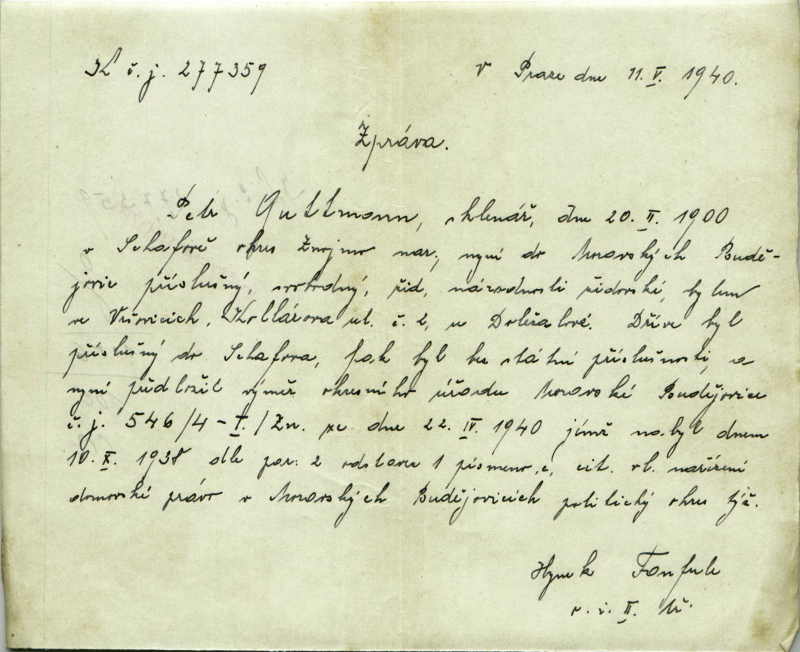 K č. j. 277359
V Praze dne 11. V. 1940.
Zpráva.
Petr Guttmann, sklenář, dne 20. II. 1900
v Schafově okres Znojmo nar., nyní do Moravských Budě-
jovic příslušný, svobodný, žid, národnosti židovské, bytem
ve Vršovicích, Kollárova ul. č. 2, u Doležalové. Dříve byl
příslušný do Schafova, pak byl bez státní příslušnosti, a
nyní předložil výměr okresního úřadu Moravské Budějovice
č. j. 546/4-I./Zn. ze dne 22. IV. 1940 jímž nabyl dnem
10. X. 1938 dle par. 2 odstavce 1 písmeno c, cit. vl. nařízení
domovské právo v Moravských Budějovicích politický okres týž.
Hynek
II.